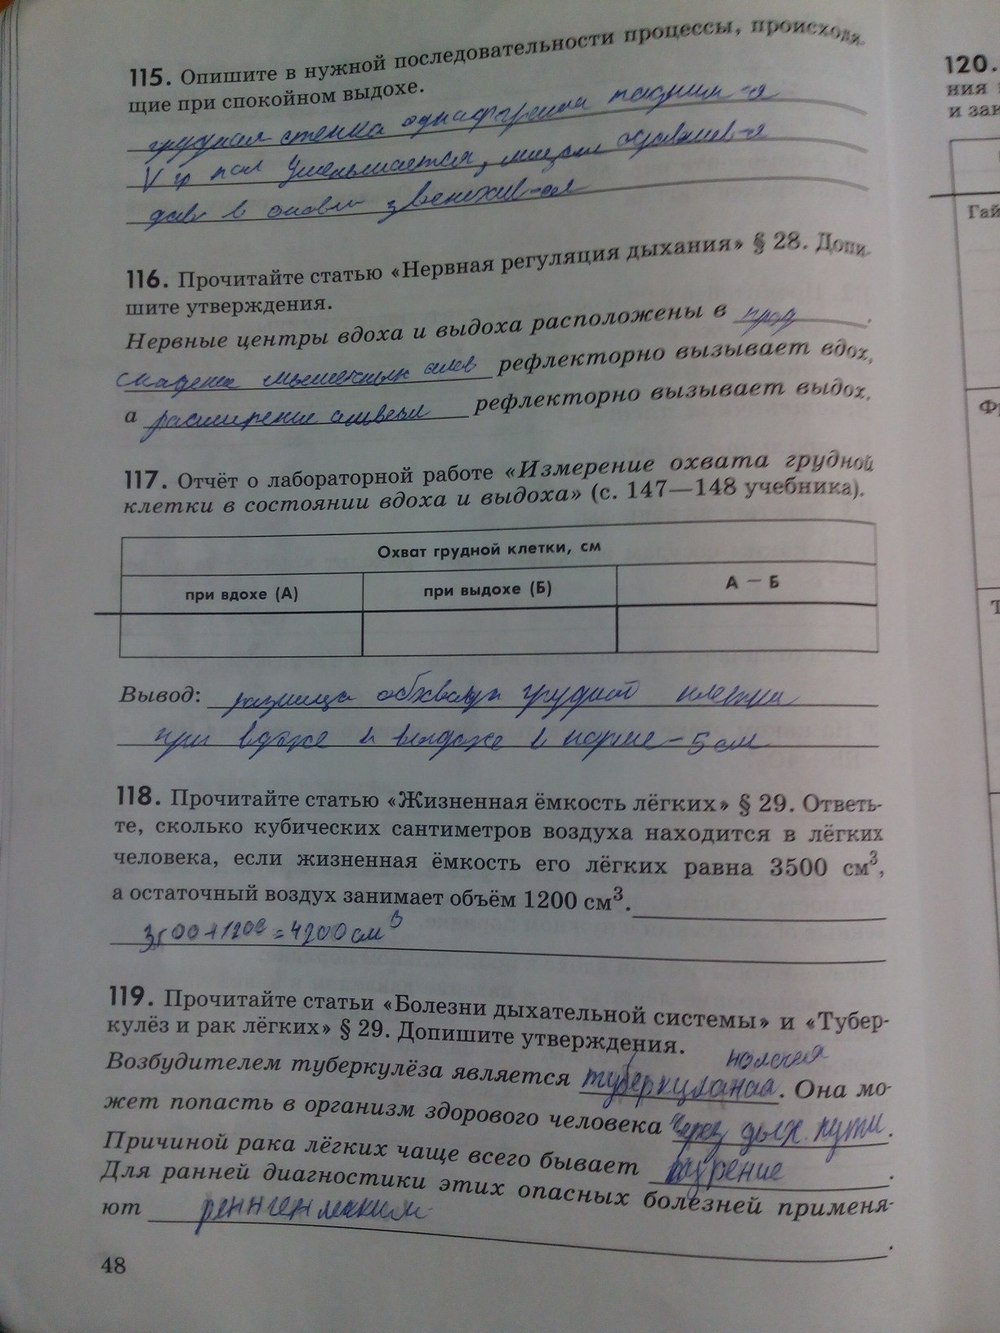 115. Опишите в нужной последовательности процессы, происходя-
щие при спокойном выдохе.
грудная стенка
V гр пол уменьшается, мышцы
дав в
116. Прочитайте статью «Нервная регуляция дыхания» § 28. Допи-
шите утверждения.
Нервные центры вдоха и выдоха расположены в прод.
рефлекторно вызывает вдох,
а расширение рефлекторно вызывает выдох.
117. Отчёт о лабораторной работе «Измерение охвата грудной
клетки в состоянии вдоха и выдоха» (с. 147—148 учебника).
Охват грудной клетки, см
при вдохе (А) при выдохе (Б) А — Б
Вывод: разница обхвата грудной клетки
при вдохе и выдохе в норме - 5 см
118. Прочитайте статью «Жизненная ёмкость лёгких» § 29. Ответь-
те, сколько кубических сантиметров воздуха находится в лёгких
человека, если жизненная ёмкость его лёгких равна 3500 см³,
а остаточный воздух занимает объём 1200 см³.
3500+1200=4200 см³
119. Прочитайте статьи «Болезни дыхательной системы» и «Тубер-
кулёз и рак лёгких» § 29. Допишите утверждения.
палочка
Возбудителем туберкулёза является. Она мо-
жет попасть в организм здорового человека через дых. пути.
Причиной рака лёгких чаще всего бывает курение.
Для ранней диагностики этих опасных болезней применя-
ют
48
120.
ния
и зан
Гай
Фр
Т